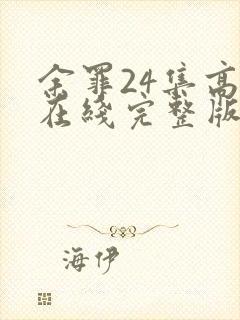 余罪24集高
在线完整版
海伊